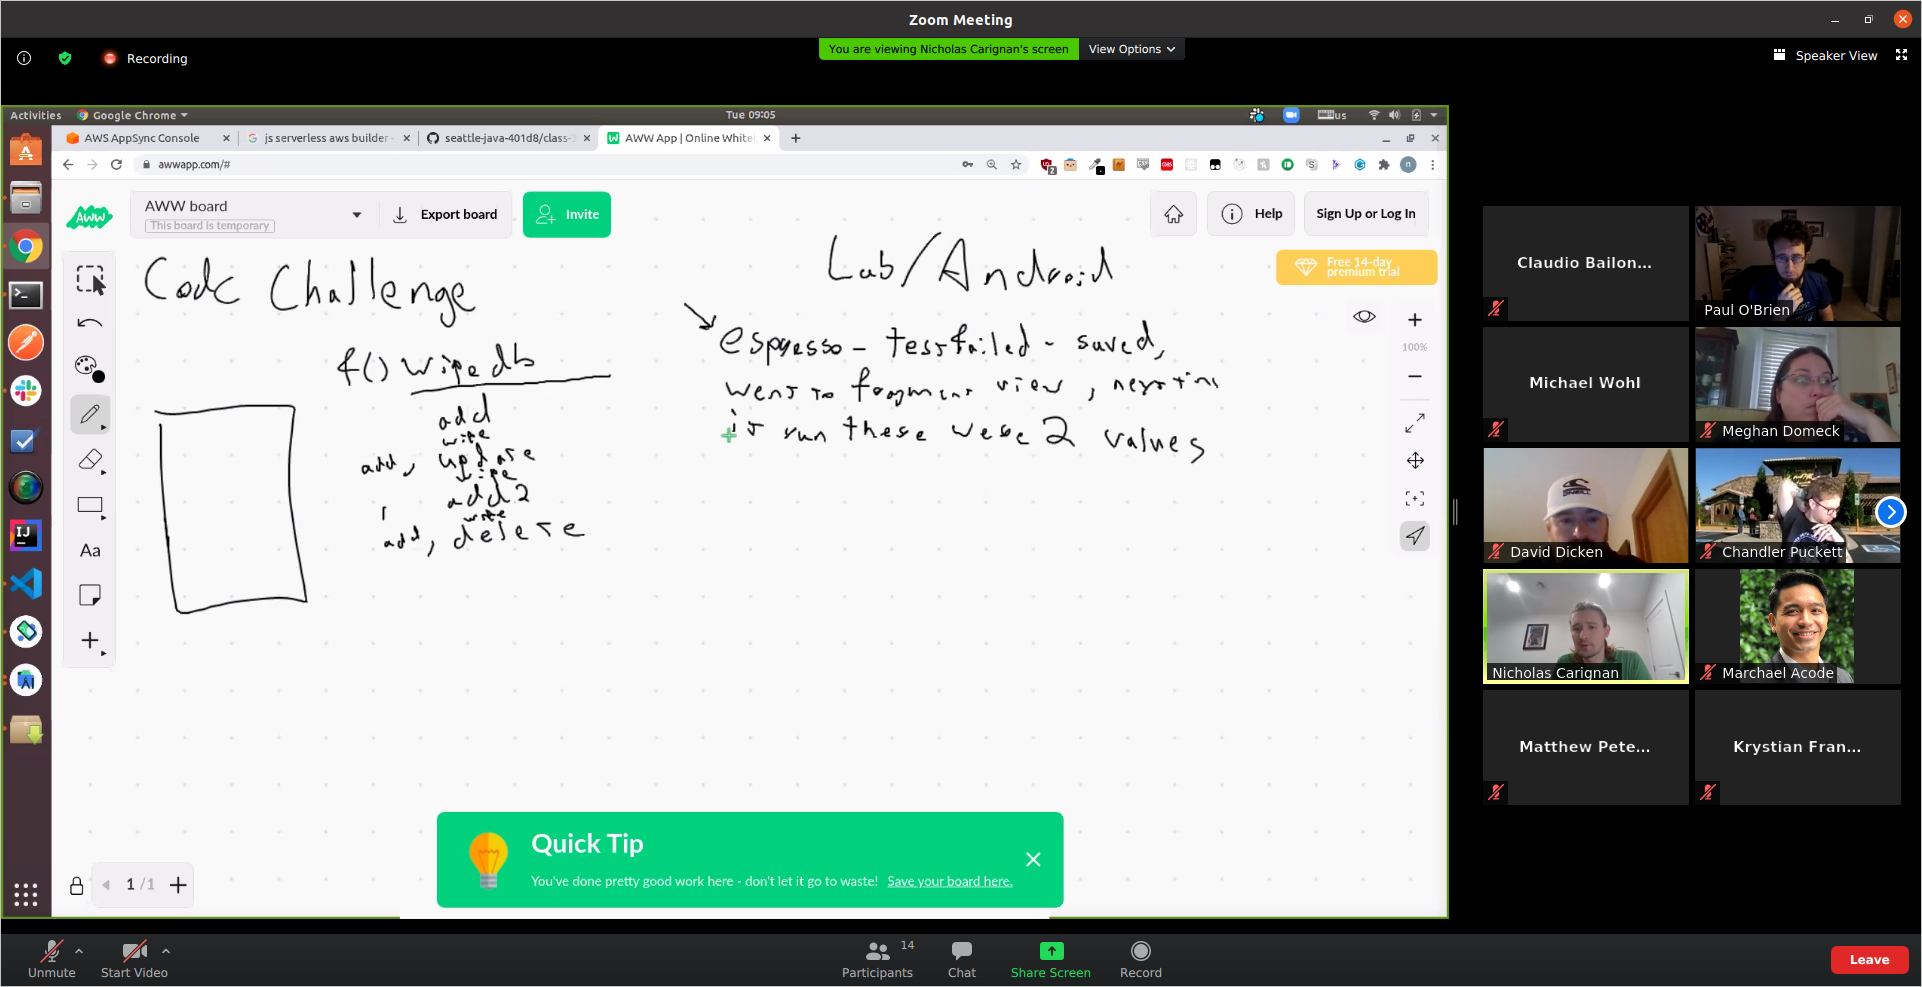 Zoom Meeting
Recording
You are viewing Nicholas Carignan's screen
View Options
Speaker View
Activities
Google Chrome
Tue 09:05
us
AWS AppSync Console
js serverless aws builder
seattle-java-401d8/class-
AWW App | Online White
awwapp.com/#
AWW
AWW board
This board is temporary
Export board
Invite
Help
Sign Up or Log In
Free 14-day
premium trial
100%
Code Challenge
f() wipedb
add
wipe
add, update
wipe
add 2
wipe
add, delete
Lab/Android
espresso - test failed - saved,
went to fragment view, next time
it run these were 2 values
Aa
1 / 1
Quick Tip
You've done pretty good work here - don't let it go to waste! Save your board here.
Claudio Bailon...
Paul O'Brien
Michael Wohl
Meghan Domeck
David Dicken
Chandler Puckett
Nicholas Carignan
Marchael Acode
Matthew Pete...
Krystian Fran...
Unmute
Start Video
Participants
14
Chat
Share Screen
Record
Leave